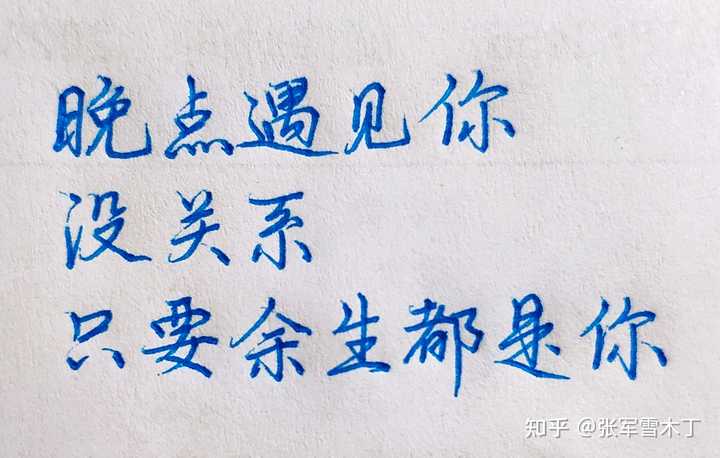 晚点遇见你
没关系
只要余生都是你
知乎 @张军雪木丁